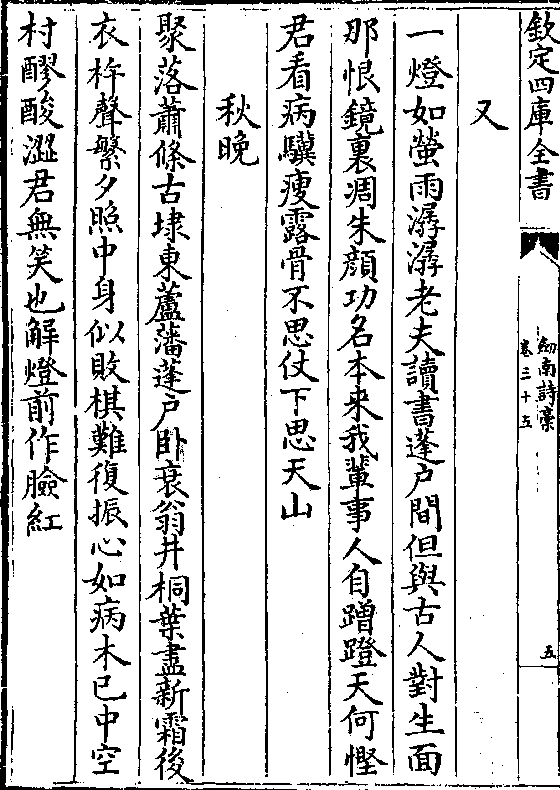 欽定四庫全書
劒南詩稾
卷三十五
五
又
一燈如螢雨潺潺老夫讀書蓬户間但與古人對生面
那恨鏡裏凋朱顔功名本來我輩事人自蹭蹬天何慳
君看病驥瘦露骨不思仗下思天山
秋晚
聚落蕭條古埭東蘆藩蓬户卧衰翁井桐葉盡新霜後
衣杵聲繁夕照中身似敗棋難復振心如病木已中空
村醪酸澀君無笑也解燈前作臉紅